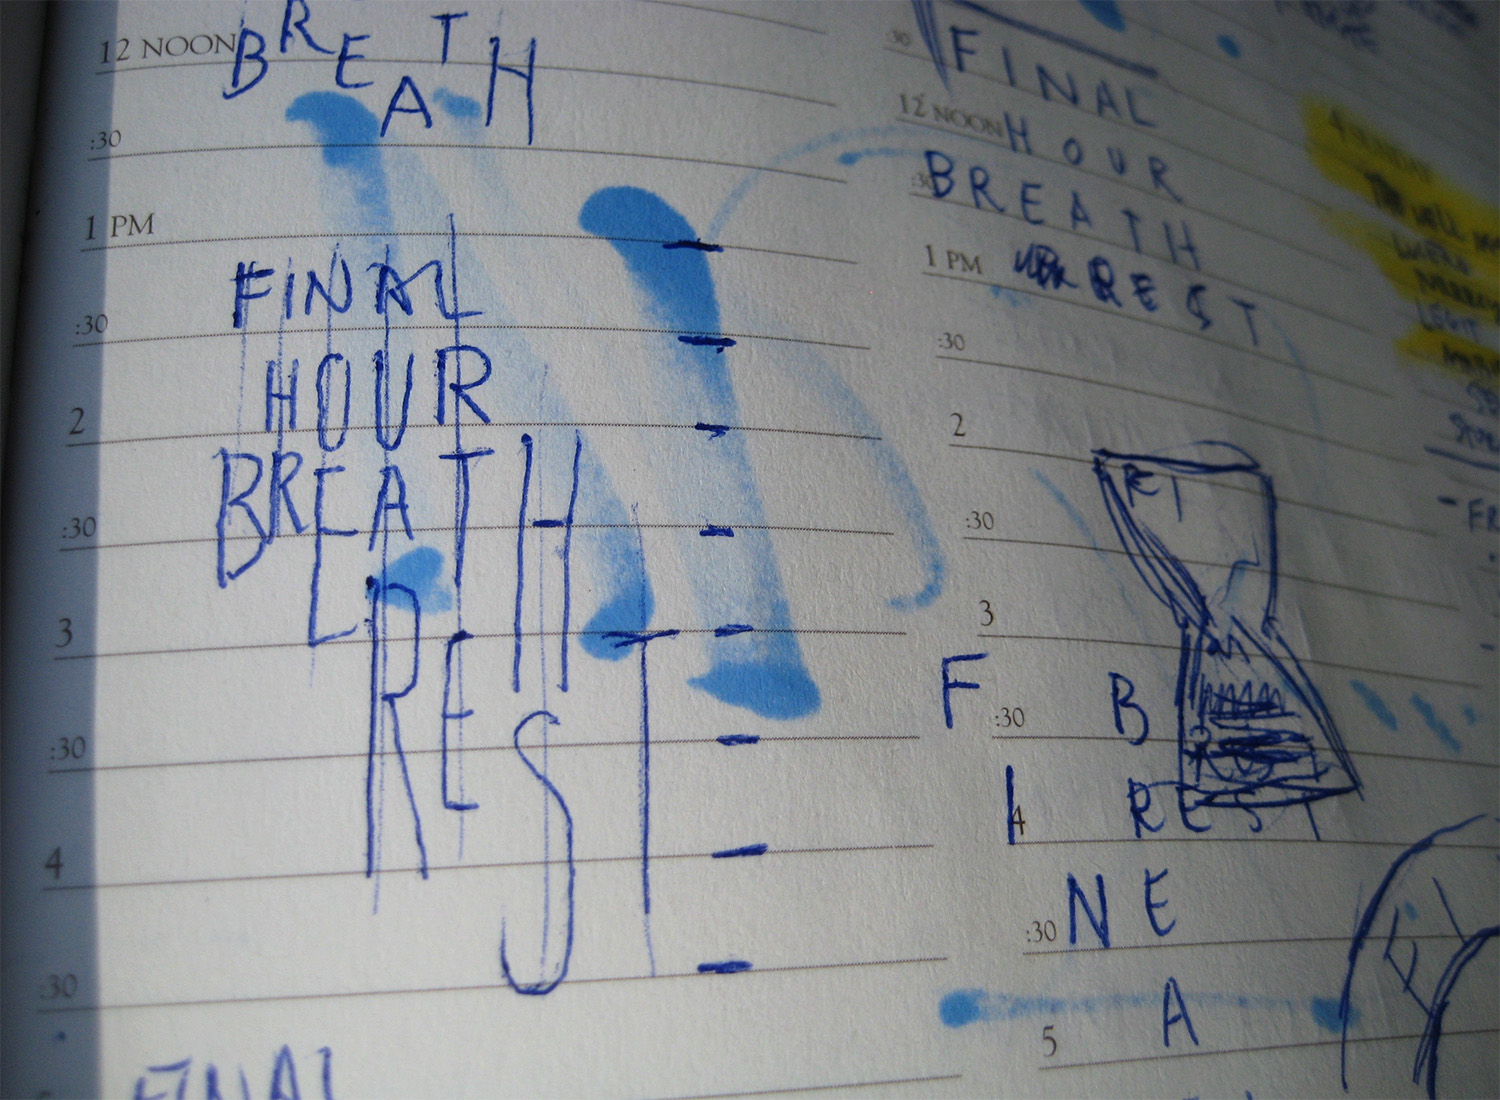 12 NOON BREATH
:30
1 PM
FINAL
:30
HOUR
2
BREATH
:30
REST
3
:30
4
:30
FINAL
:30
FINAL
12 NOON HOUR
:30 BREATH
1 PM REST
:30
2
:30
3
F :30 B
I 4 REST
:30 N E
A
5
LEGIT
- FR